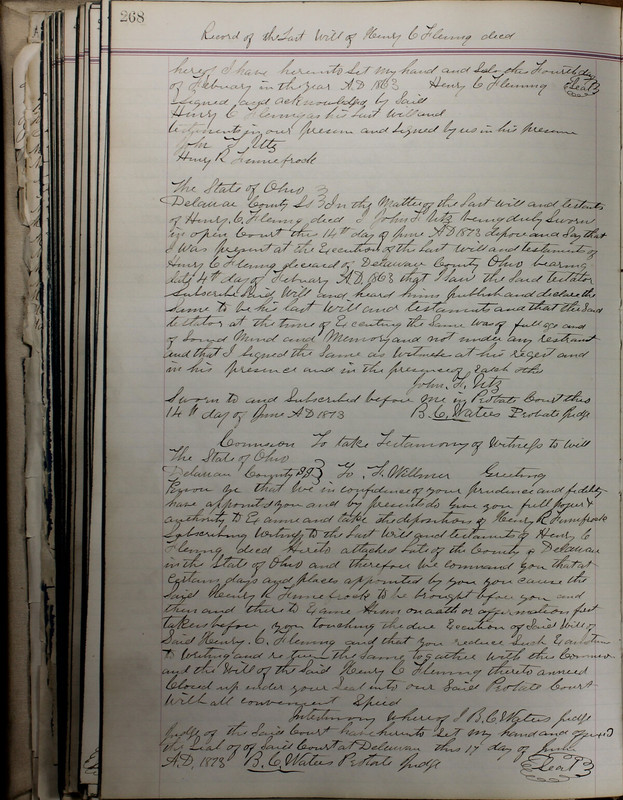 268
Record of the Last Will of Henry C Fleming decd
hereof I have hereunto Set my hand and Seal this Fourth day
of Febuary in the year A.D 1863 Henry C Flemming Seal
Signed and acknowledged by Said
Henry C Fleming as his Last Will and
testiment in our presence and Signed by us in his presence
John F Utz
Henry R Finnefrock
The State of Ohio
Delaware County SS In the Matter of the Last Will and testiment
of Henry C Fleming decd I John F Utz being duly Sworn
in open Court this 14th day of June AD 1873 depose and Say that
I was present at the Execution of the last Will and testiment of
Henry C Fleming deceased of Delaware County Ohio bearing
date 4th day of Febuary A.D. 1863 that I Saw the Said testator
Subscribe Said Will and heard him publish and declare the
Same to be his last Will and testiment and that the Said
testator at the time of Executing the Same was of full age and
of Sound Mind and Memory and not under any restraint
and that I Signed the Same as Witness at his request and
in his presence and in the presence of Each other
John F. Utz
Sworn to and Subscribed before me in Probate Court this
14th day of June AD 1873 B. C. Waters Probate Judge
Comision To take Testamony of Witness to Will
The State of Ohio
Delawar County SS To F. Willmer Greeting
Know ye that We in confidence of your prudence and fidelity
have appointed you and by presents do give you full power &
authority to Examine and take the deposition of Henry R Finnefrock
Subscribing Witness to the Last Will and testiment of Henry C
Fleming decd Hereto attached Late of the County of Delaware
in the State of Ohio and therefore We command you that at
Certain days and places appointed by you you cause the
Said Henry R Finnefrock to be brought before you and
then and there to Examine Him on oath or affirmation first
taken before you touching the due Execution of Said Will of
Said Henry. C. Fleming and that you reduce Such Examination
to Writing and return the Same together with this Commission
and the Will of the Said Henry C Fleming thereto annexed
Closed up under your Seal into our Said Probate Court
With all convenient Speed
In testimony Where of I B. C. Waters Judge
Judge of the Said Court have hereunto Set my hand and affixed
the Seal of of Said Court at Delaware this 17 day of June
A.D. 1873 B. C. Waters Probate Judge Seal